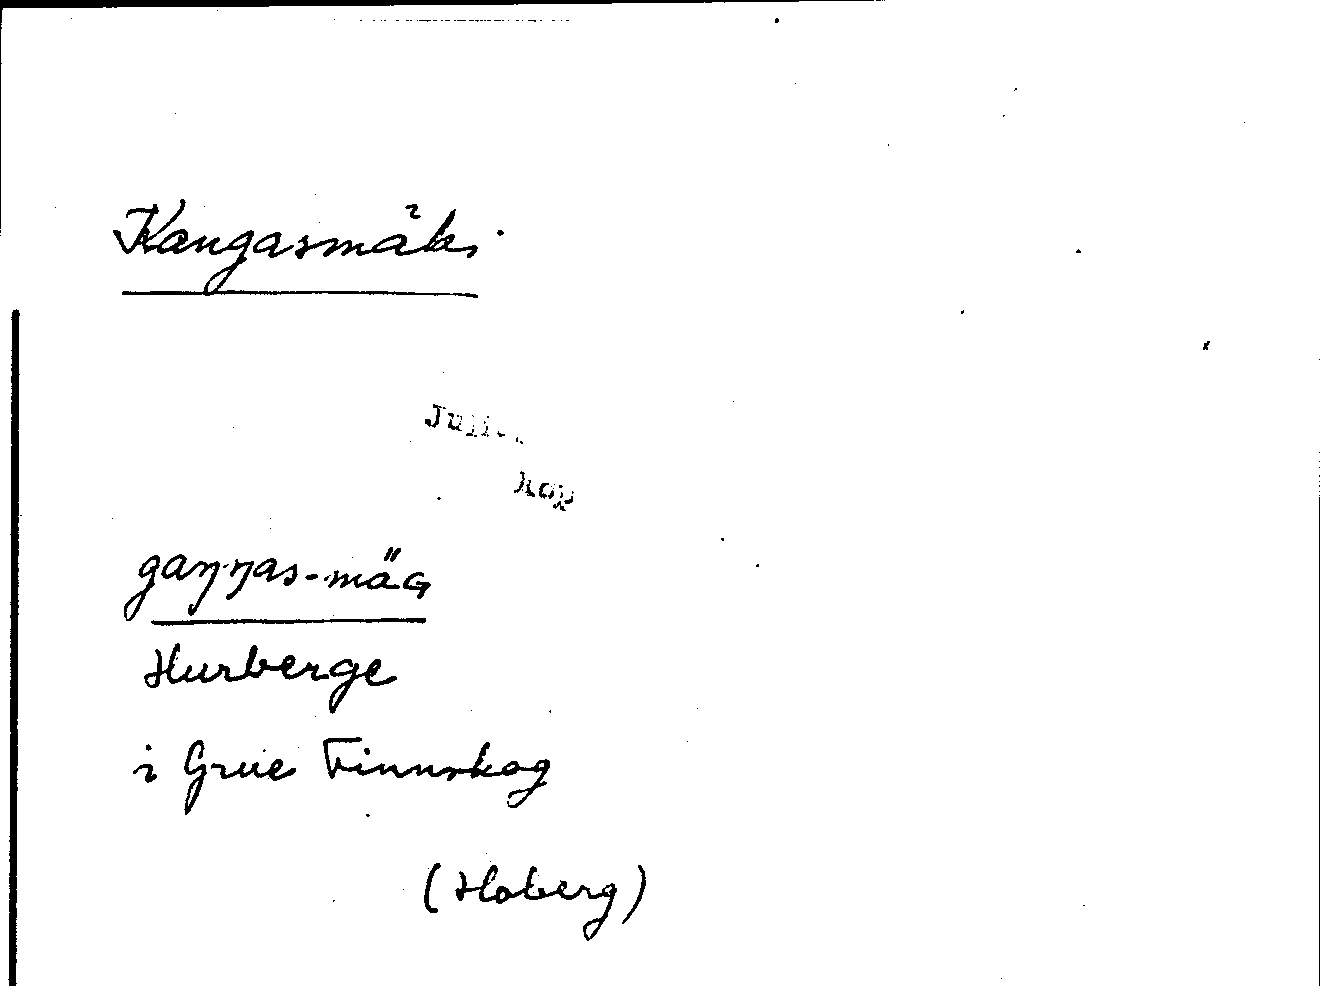 Kangasmäki
kop
gaŋŋas-mäG
Hurberge
i Grue Finnskog
(Hoberg)